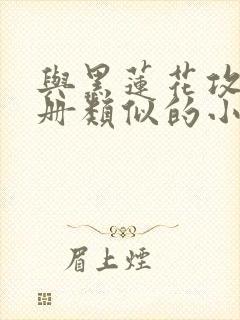 與黑蓮花攻
册類似的小
眉上煙